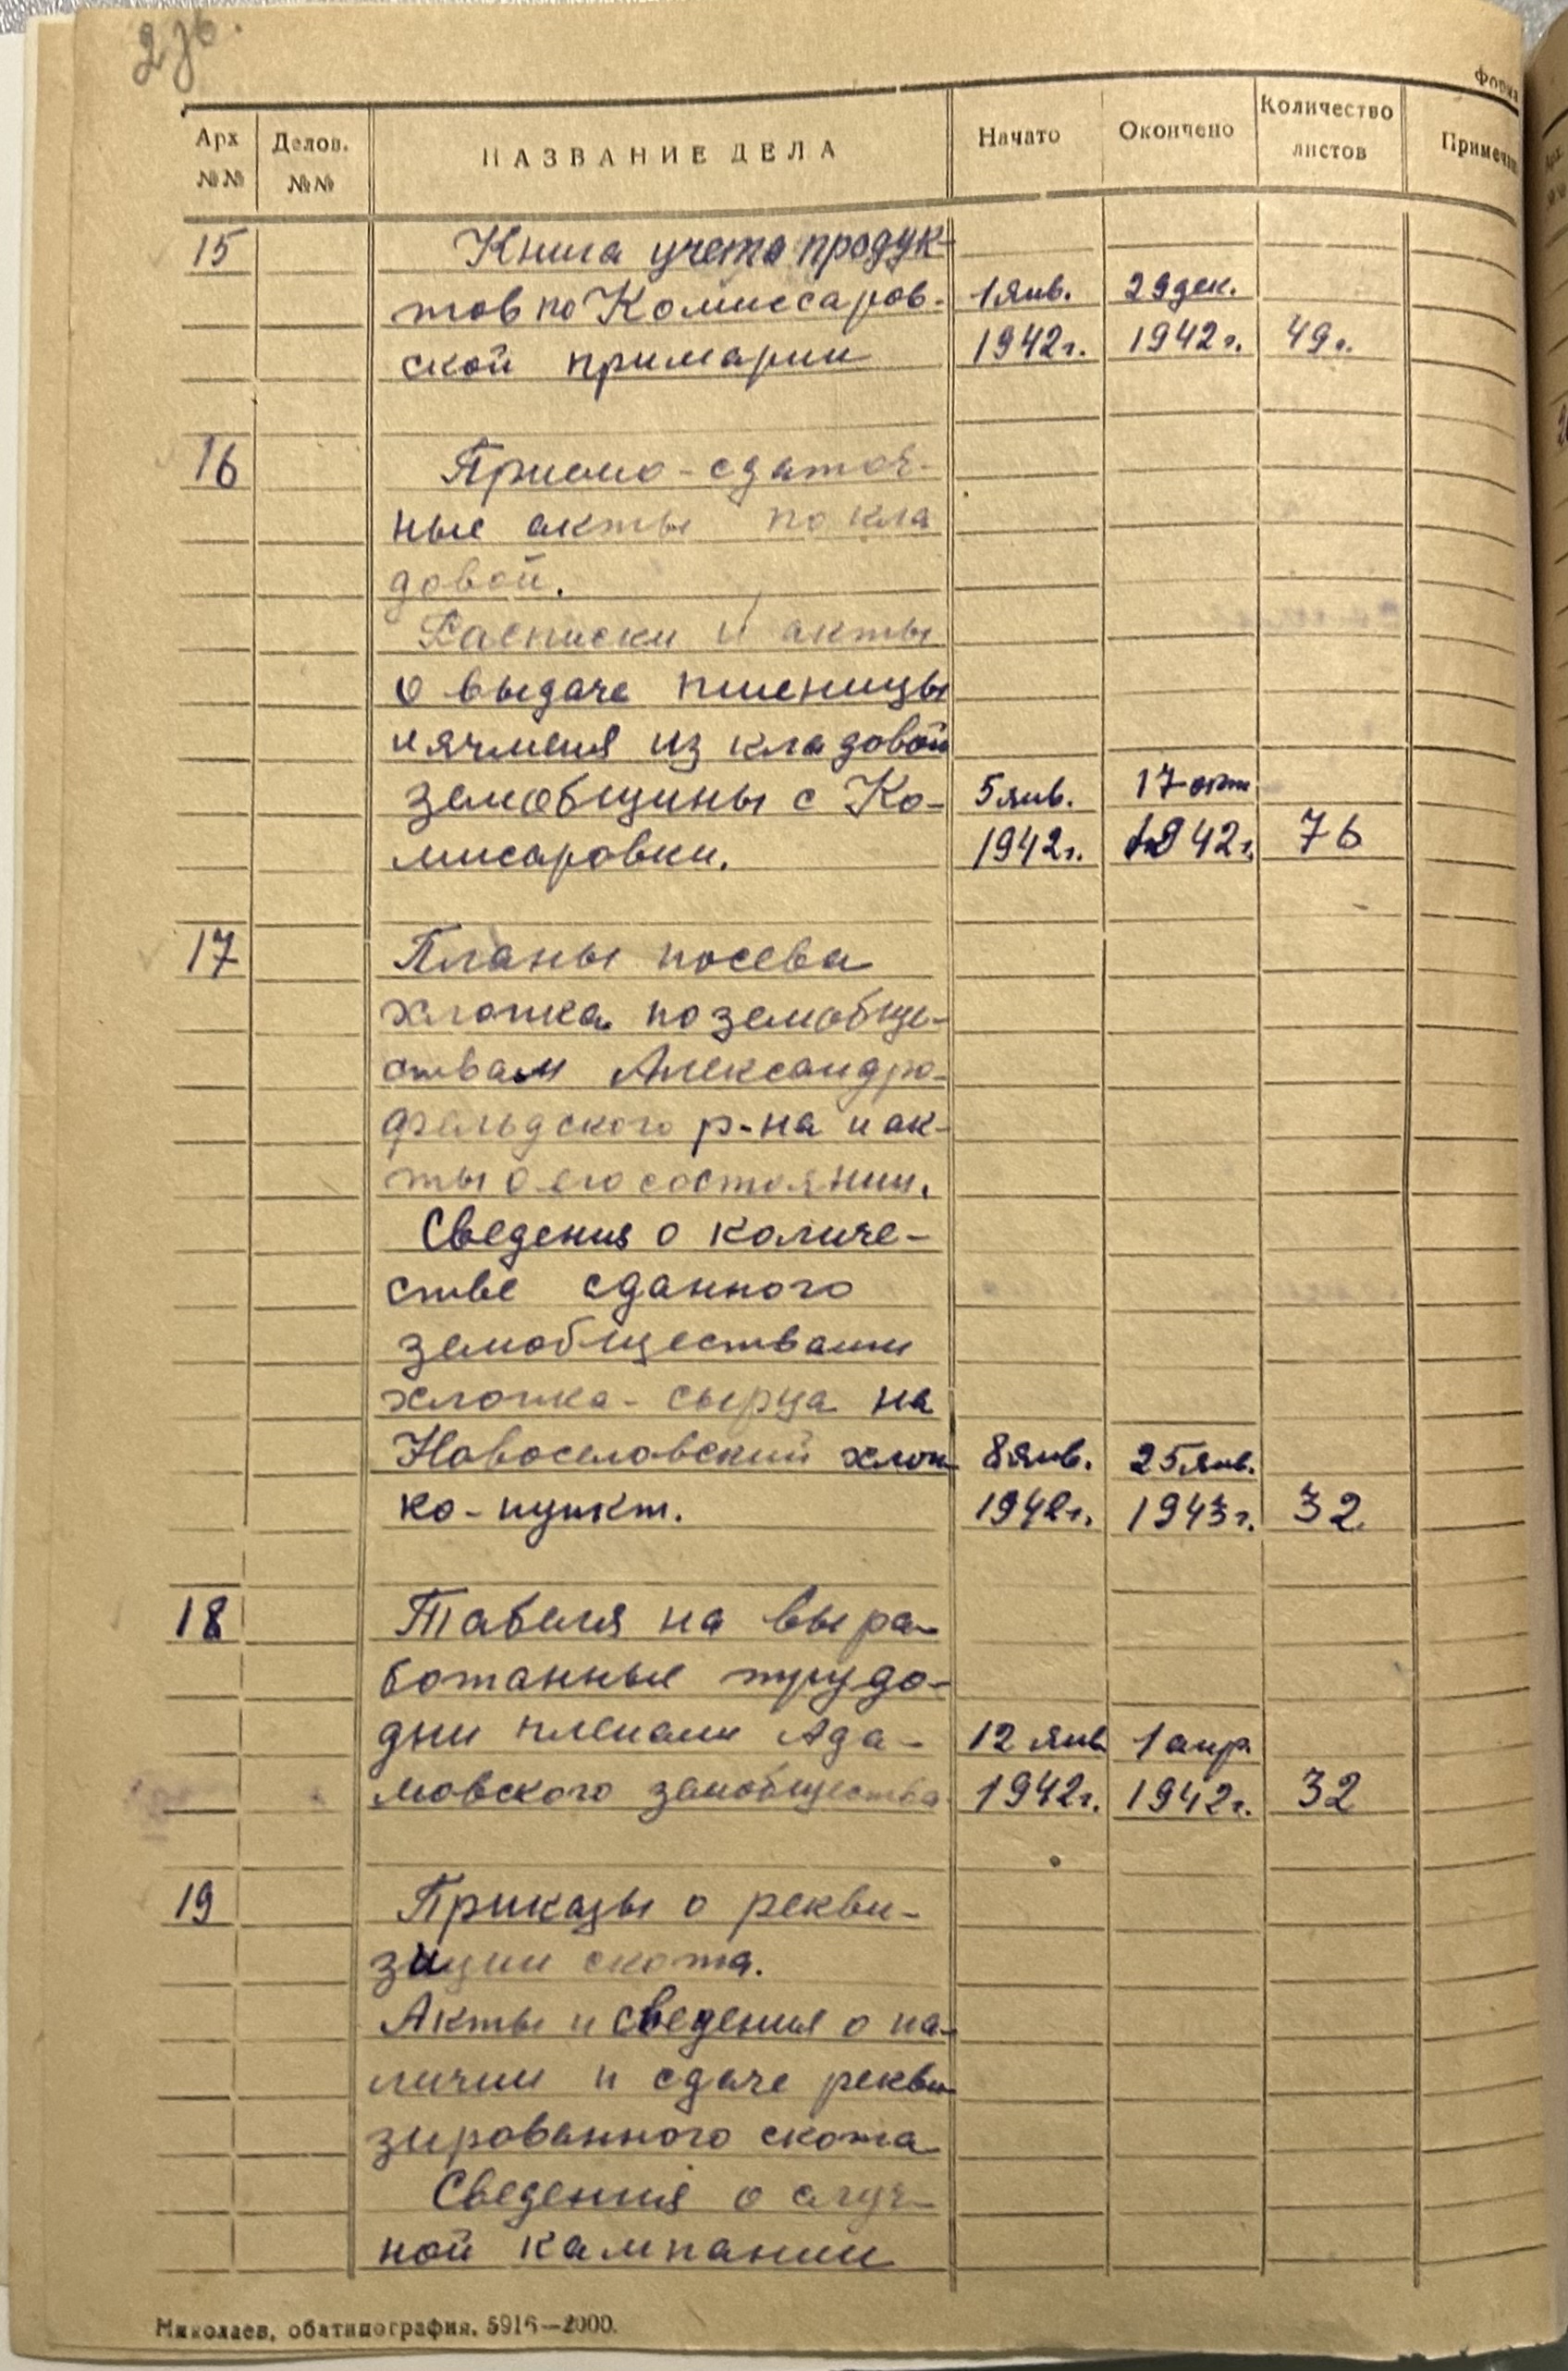 2зв.
Форма
Арх №№ Делов. №№ НАЗВАНИЕ ДЕЛА Начато Окончено Количество листов Примечан
15 Книга учета продук-
тов по Комиссаров- 1 янв. 29 дек.
ской примарии 1942г. 1942г. 49л.
16 Приемо-сдаточ-
ные акты по кла
довой.
Расписки и акты
о выдаче пшеницы
и ячменя из кладовой
земобщины с Ко- 5 янв. 17 окт
мисаровки. 1942г. 1942г. 76
17 Планы посева
хлопка по земобще-
ствам Александро-
фельдского р-на и ак-
ты о его состоянии.
Сведения о количе-
стве сданного
земобществами
хлопка-сырца на
Новоселовский хлоп- 8 янв. 25 янв.
ко-пункт. 1942г. 1943г. 32
18 Табеля на выра-
ботанные трудо-
дни членами Ада- 12 янв 1 апр.
мовского земобщества 1942г. 1942г. 32
19 Приказы о рекви-
зиции скота.
Акты и сведения о на-
личии и сдаче рекви-
зированного скота
Сведения о случ-
ной кампании
Николаев, облтипография. 5916—2000.